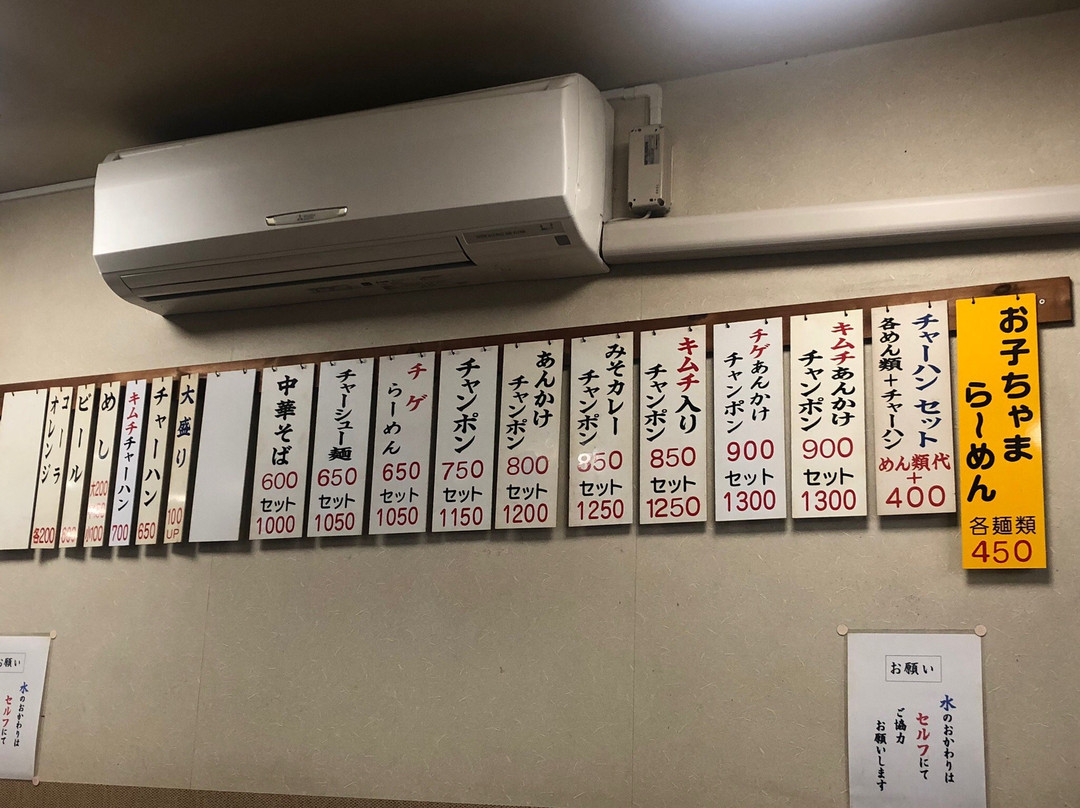 お子ちゃま
らーめん
各麺類
450
チャーハンセット
各めん類+チャーハン
めん類代
+
400
キムチあんかけ
チャンポン
900
セット
1300
チゲあんかけ
チャンポン
900
セット
1300
キムチ入り
チャンポン
850
セット
1250
みそカレー
チャンポン
850
セット
1250
あんかけ
チャンポン
800
セット
1200
チャンポン
750
セット
1150
チゲ
らーめん
650
セット
1050
チャーシュー麺
650
セット
1050
中華そば
600
セット
1000
大盛り
100
UP
チャーハン
650
キムチチャーハン
700
めし
大200
小100
ビール
600
コーラ
オレンジ
各200
お願い
水のおかわりは
セルフにて
ご協力
お願いします
お願い
水のおかわりは
セルフにて